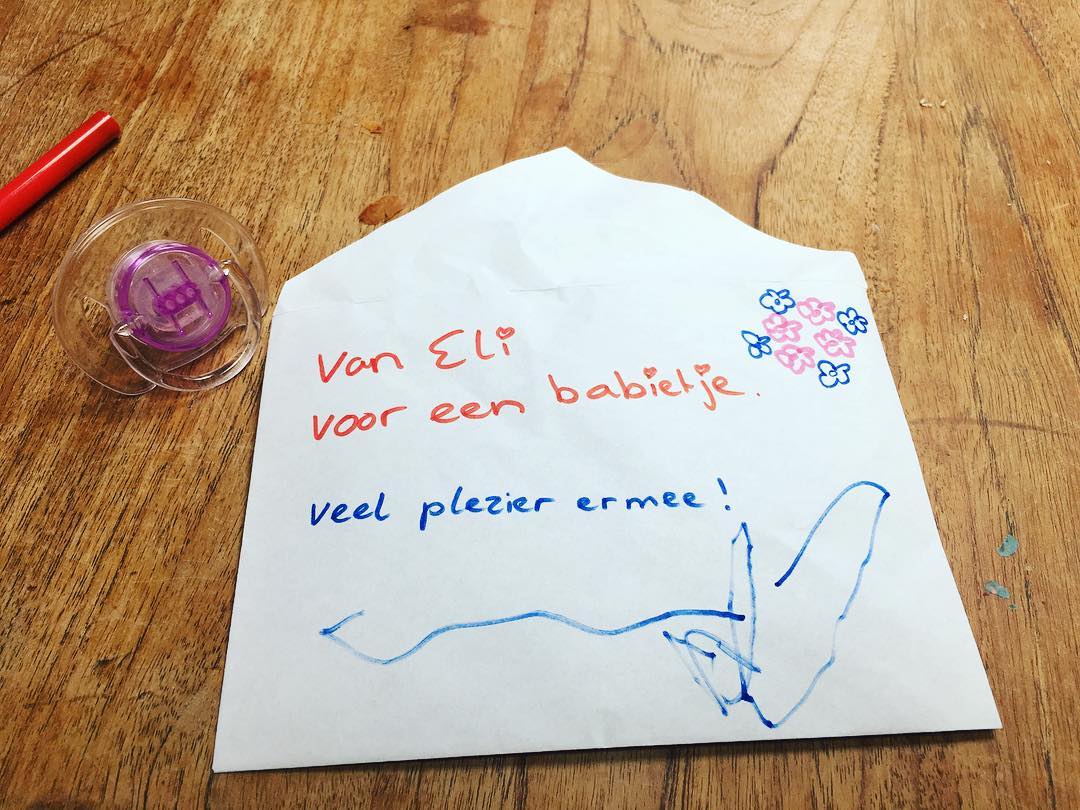 Van Eli
voor een babietje.
veel plezier ermee!